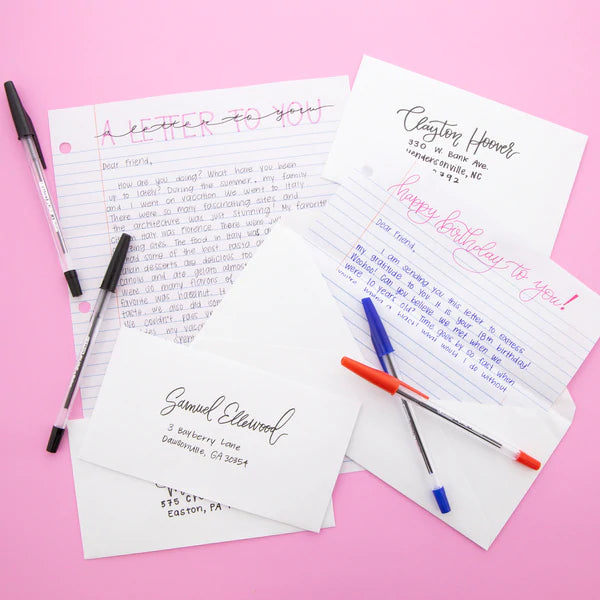 A LETTER TO YOU
a letter to you
Dear Friend,
How are you doing? What have you been
up to lately? During the summer, my family
and I went on vacation. We went to Italy.
There were so many fascinating sites and
the architecture was just stunning! My favorite
Italy was Florence. There were
sites. The food in Italy was
had some of the best pasta
Italian desserts are delicious too
cannoli and ate gelato almost
were so many flavors of
favorite was hazelnut. It
taste we also did some
We couldn't pass
my vacation
Clayton Hoover
330 W. Bank Ave.
Hendersonville, NC
792
happy birthday to you!
Dear Friend,
I am sending you this letter to express
my gratitude to you. It is your 18th birthday!
Woohoo! Can you believe we met when we
were 10 years old? Time goes by so fast when
what would I do without
Samuel Ellewood
3 Bayberry Lane
Dawsonville, GA 30354
575 C
Easton, PA